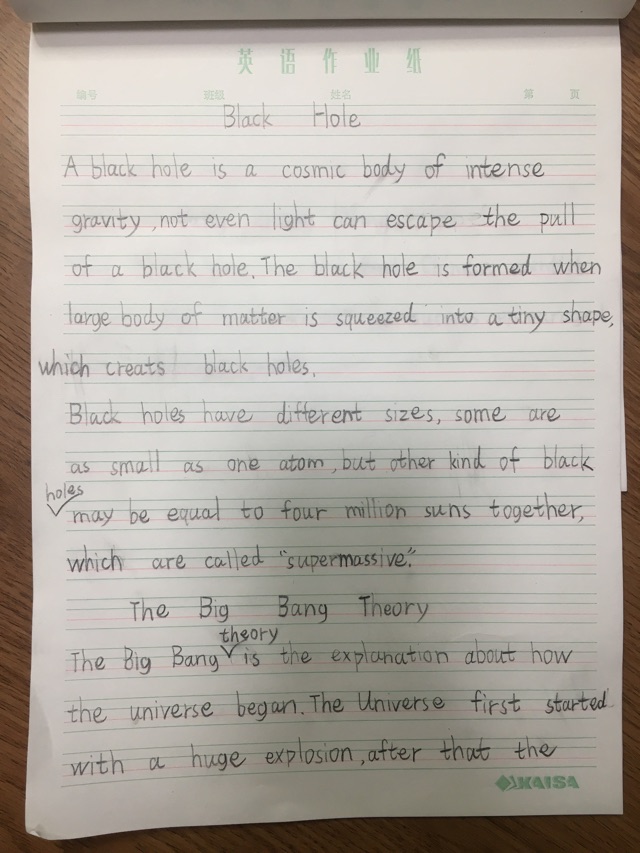 英语作业纸
编号 班级 姓名 第 页
Black Hole
A black hole is a cosmic body of intense
gravity, not even light can escape the pull
of a black hole. The black hole is formed when
large body of matter is squeezed into a tiny shape,
which creats black holes.
Black holes have different sizes, some are
as small as one atom, but other kind of black
holes
may be equal to four million suns together,
which are called "supermassive".
The Big Bang Theory
theory
The Big Bang is the explanation about how
the universe began. The Universe first started
with a huge explosion, after that the
KAISA